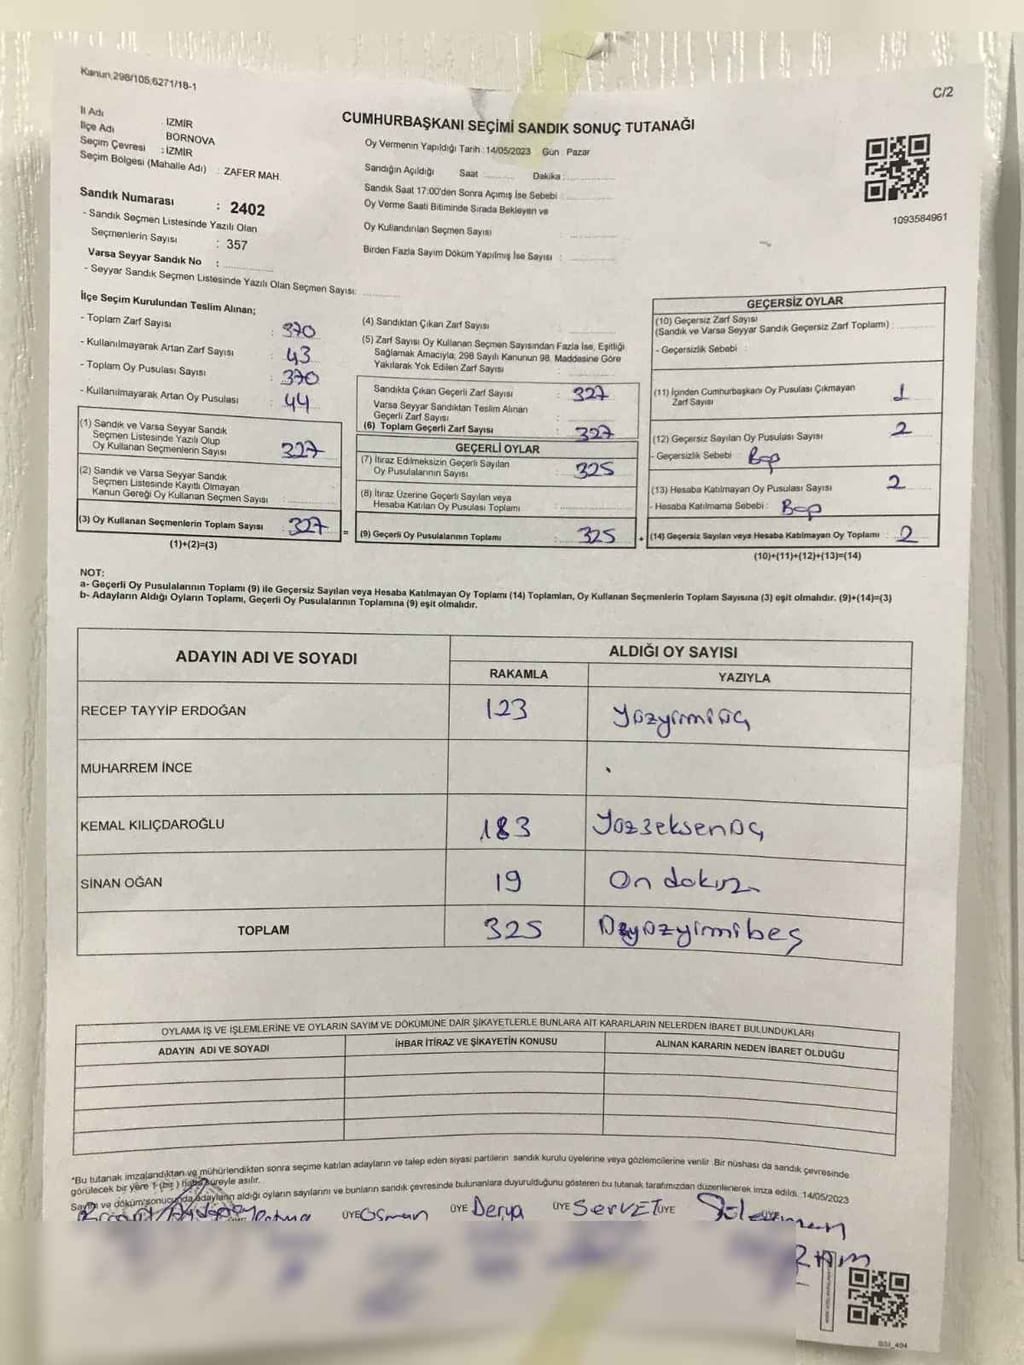 Kanun 298/105,6271/18-1
C/2
İl Adı : İZMİR
İlçe Adı BORNOVA
Seçim Çevresi : İZMİR
Seçim Bölgesi (Mahalle Adı) : ZAFER MAH.
CUMHURBAŞKANI SEÇİMİ SANDIK SONUÇ TUTANAĞI
Oy Vermenin Yapıldığı Tarih : 14/05/2023 Gün : Pazar
Sandığın Açıldığı Saat Dakika :
Sandık Saat 17:00'den Sonra Açımış İse Sebebi :
Oy Verme Saati Bitiminde Sırada Bekleyen ve
Oy Kullandırılan Seçmen Sayısı
Birden Fazla Sayım Döküm Yapılmış İse Sayısı :
1093584961
Sandık Numarası : 2402
- Sandık Seçmen Listesinde Yazılı Olan
Seçmenlerin Sayısı : 357
Varsa Seyyar Sandık No :
- Seyyar Sandık Seçmen Listesinde Yazılı Olan Seçmen Sayısı:
İlçe Seçim Kurulundan Teslim Alınan;
- Toplam Zarf Sayısı : 370
- Kullanılmayarak Artan Zarf Sayısı : 43
- Toplam Oy Pusulası Sayısı : 370
- Kullanılmayarak Artan Oy Pusulası : 44
(1) Sandık ve Varsa Seyyar Sandık
Seçmen Listesinde Yazılı Olup
Oy Kullanan Seçmenlerin Sayısı : 327
(2) Sandık ve Varsa Seyyar Sandık
Seçmen Listesinde Kayıtlı Olmayan
Kanun Gereği Oy Kullanan Seçmen Sayısı :
(3) Oy Kullanan Seçmenlerin Toplam Sayısı : 327
(1)+(2)=(3)
(4) Sandıktan Çıkan Zarf Sayısı
(5) Zarf Sayısı Oy Kullanan Seçmen Sayısından Fazla İse, Eşitliği
Sağlamak Amacıyla, 298 Sayılı Kanunun 98. Maddesine Göre
Yakılarak Yok Edilen Zarf Sayısı :
Sandıkta Çıkan Geçerli Zarf Sayısı : 327
Varsa Seyyar Sandıktan Teslim Alınan
Geçerli Zarf Sayısı :
(6) Toplam Geçerli Zarf Sayısı : 327
GEÇERLİ OYLAR
(7) İtiraz Edilmeksizin Geçerli Sayılan
Oy Pusulalarının Sayısı : 325
(8) İtiraz Üzerine Geçerli Sayılan veya
Hesaba Katılan Oy Pusulası Toplamı :
= (9) Geçerli Oy Pusulalarının Toplamı : 325 +
GEÇERSİZ OYLAR
(10) Geçersiz Zarf Sayısı
(Sandık ve Varsa Seyyar Sandık Geçersiz Zarf Toplamı) :
- Geçersizlik Sebebi :
(11) İçinden Cumhurbaşkanı Oy Pusulası Çıkmayan
Zarf Sayısı
(12) Geçersiz Sayılan Oy Pusulası Sayısı : 2
- Geçersizlik Sebebi :
(13) Hesaba Katılmayan Oy Pusulası Sayısı : 2
- Hesaba Katılmama Sebebi :
(14) Geçersiz Sayılan veya Hesaba Katılmayan Oy Toplamı : 2
(10)+(11)+(12)+(13)=(14)
NOT:
a- Geçerli Oy Pusulalarının Toplamı (9) ile Geçersiz Sayılan veya Hesaba Katılmayan Oy Toplamı (14) Toplamları, Oy Kullanan Seçmenlerin Toplam Sayısına (3) eşit olmalıdır. (9)+(14)=(3)
b- Adayların Aldığı Oyların Toplamı, Geçerli Oy Pusulalarının Toplamına (9) eşit olmalıdır.
ADAYIN ADI VE SOYADI ALDIĞI OY SAYISI
RAKAMLA YAZIYLA
RECEP TAYYİP ERDOĞAN 123 Yüzyirmiüç
MUHARREM İNCE
KEMAL KILIÇDAROĞLU 183 Yüzseksenüç
SİNAN OĞAN 19 On dokuz
TOPLAM 325 Üçyüzyirmibeş
OYLAMA İŞ VE İŞLEMLERİNE VE OYLARIN SAYIM VE DÖKÜMÜNE DAİR ŞİKAYETLERLE BUNLARA AİT KARARLARIN NELERDEN İBARET BULUNDUKLARI
ADAYIN ADI VE SOYADI İHBAR İTİRAZ VE ŞİKAYETİN KONUSU ALINAN KARARIN NEDEN İBARET OLDUĞU
*Bu tutanak imzalandıktan ve mühürlendikten sonra seçime katılan adayların ve talep eden siyasi partilerin sandık kurulu üyelerine veya gözlemcilerine verilir. Bir nüshası da sandık çevresinde
görülecek bir yere 1 (bir) süreyle asılır.
Sayım ve döküm sonucunda adayların aldığı oyların sayılarını ve bunların sandık çevresinde bulunanlara duyurulduğunu gösteren bu tutanak tarafımızdan düzenlenerek imza edildi. 14/05/2023
ÜYE Osman ÜYE Derya ÜYE SERVET ÜYE Süleyman
BSI_494